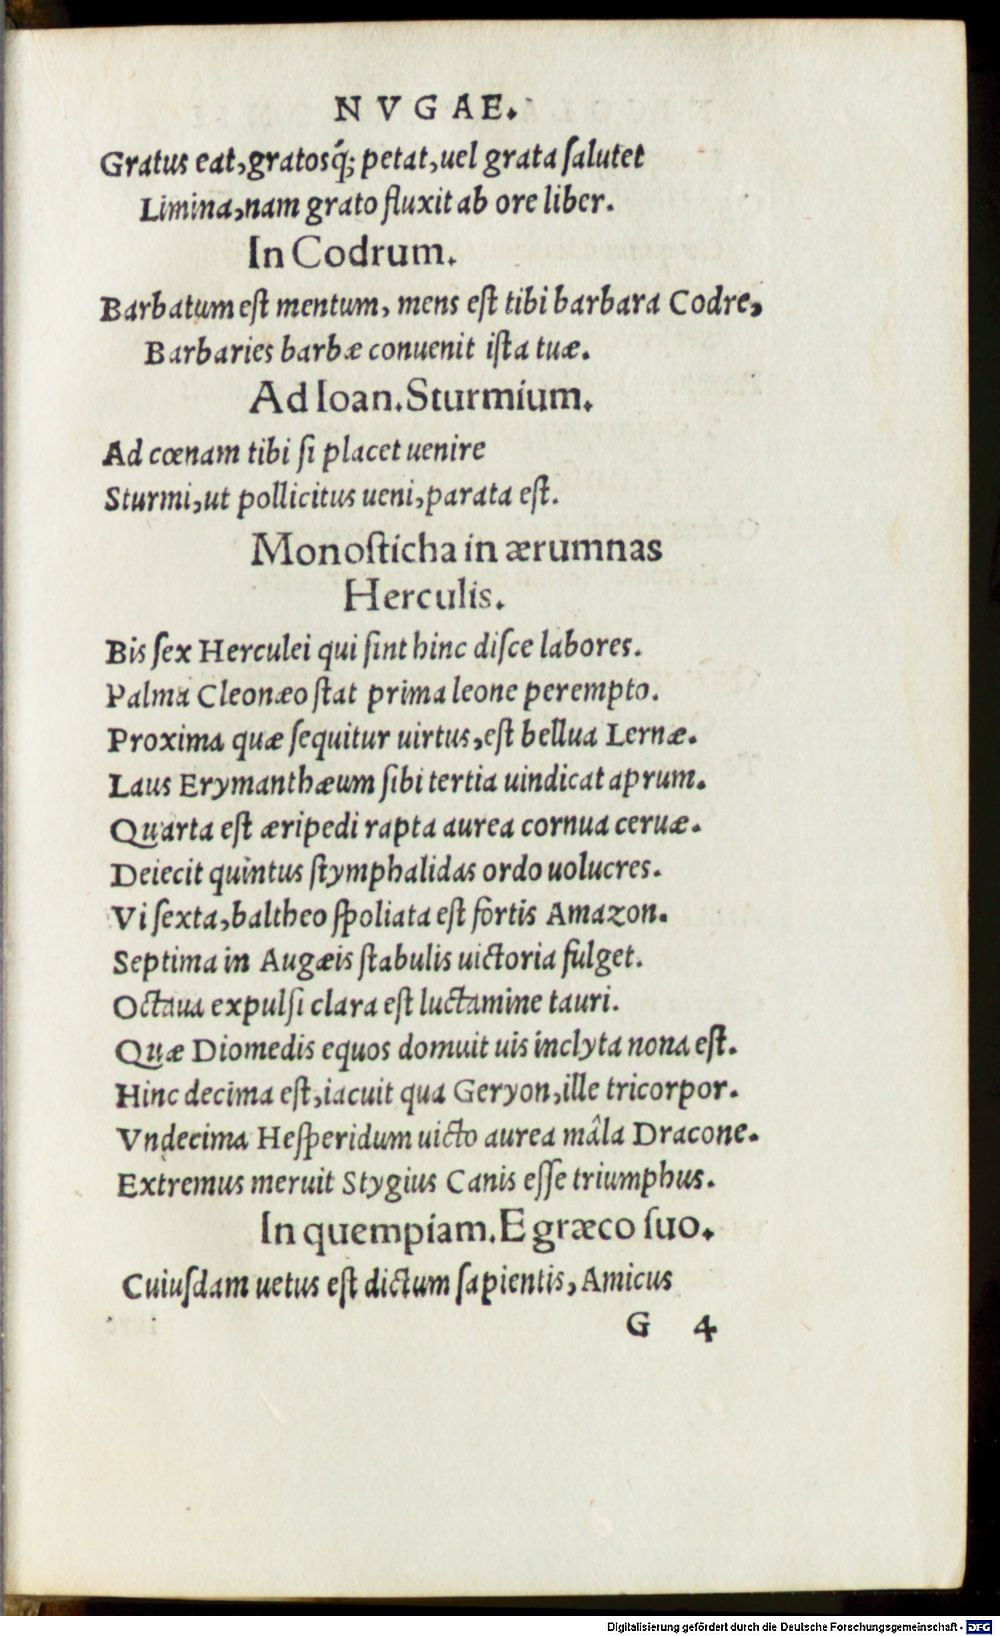 NVGAE.
Gratus eat, gratosq́; petat, uel grata ſalutet
Limina, nam grato fluxit ab ore liber.
In Codrum.
Barbatum eſt mentum, mens eſt tibi barbara Codre,
Barbaries barbæ conuenit iſta tuæ.
Ad Ioan. Sturmium.
Ad cœnam tibi ſi placet uenire
Sturmi, ut pollicitus ueni, parata eſt.
Monoſticha in ærumnas
Herculis.
Bis ſex Herculei qui ſint hinc diſce labores.
Palma Cleonæo ſtat prima leone perempto.
Proxima quæ ſequitur uirtus, eſt bellua Lernæ.
Laus Erymanthæum ſibi tertia uindicat aprum.
Quarta eſt æripedi rapta aurea cornua ceruæ.
Deiecit quintus ſtymphalidas ordo uolucres.
Vi ſexta, baltheo ſpoliata eſt fortis Amazon.
Septima in Augæis ſtabulis uictoria fulget.
Octaua expulſi clara eſt luctamine tauri.
Quæ Diomedis equos domuit uis inclyta nona eſt.
Hinc decima eſt, iacuit qua Geryon, ille tricorpor.
Vndecima Heſperidum uicto aurea mâla Dracone.
Extremus meruit Stygius Canis eſſe triumphus.
In quempiam. E græco ſuo.
Cuiuſdam uetus eſt dictum ſapientis, Amicus
G 4
Digitalisierung gefördert durch die Deutsche Forschungsgemeinschaft - DFG